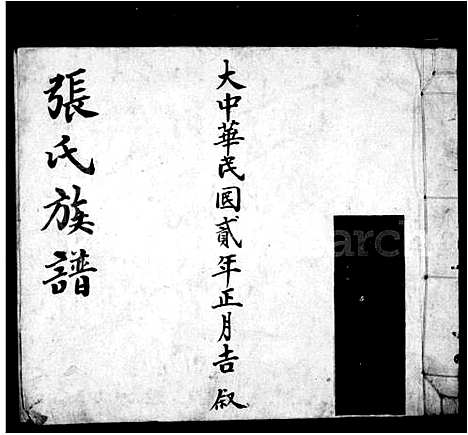 大中華民国貳年正月吉叙
張氏族譜
arc